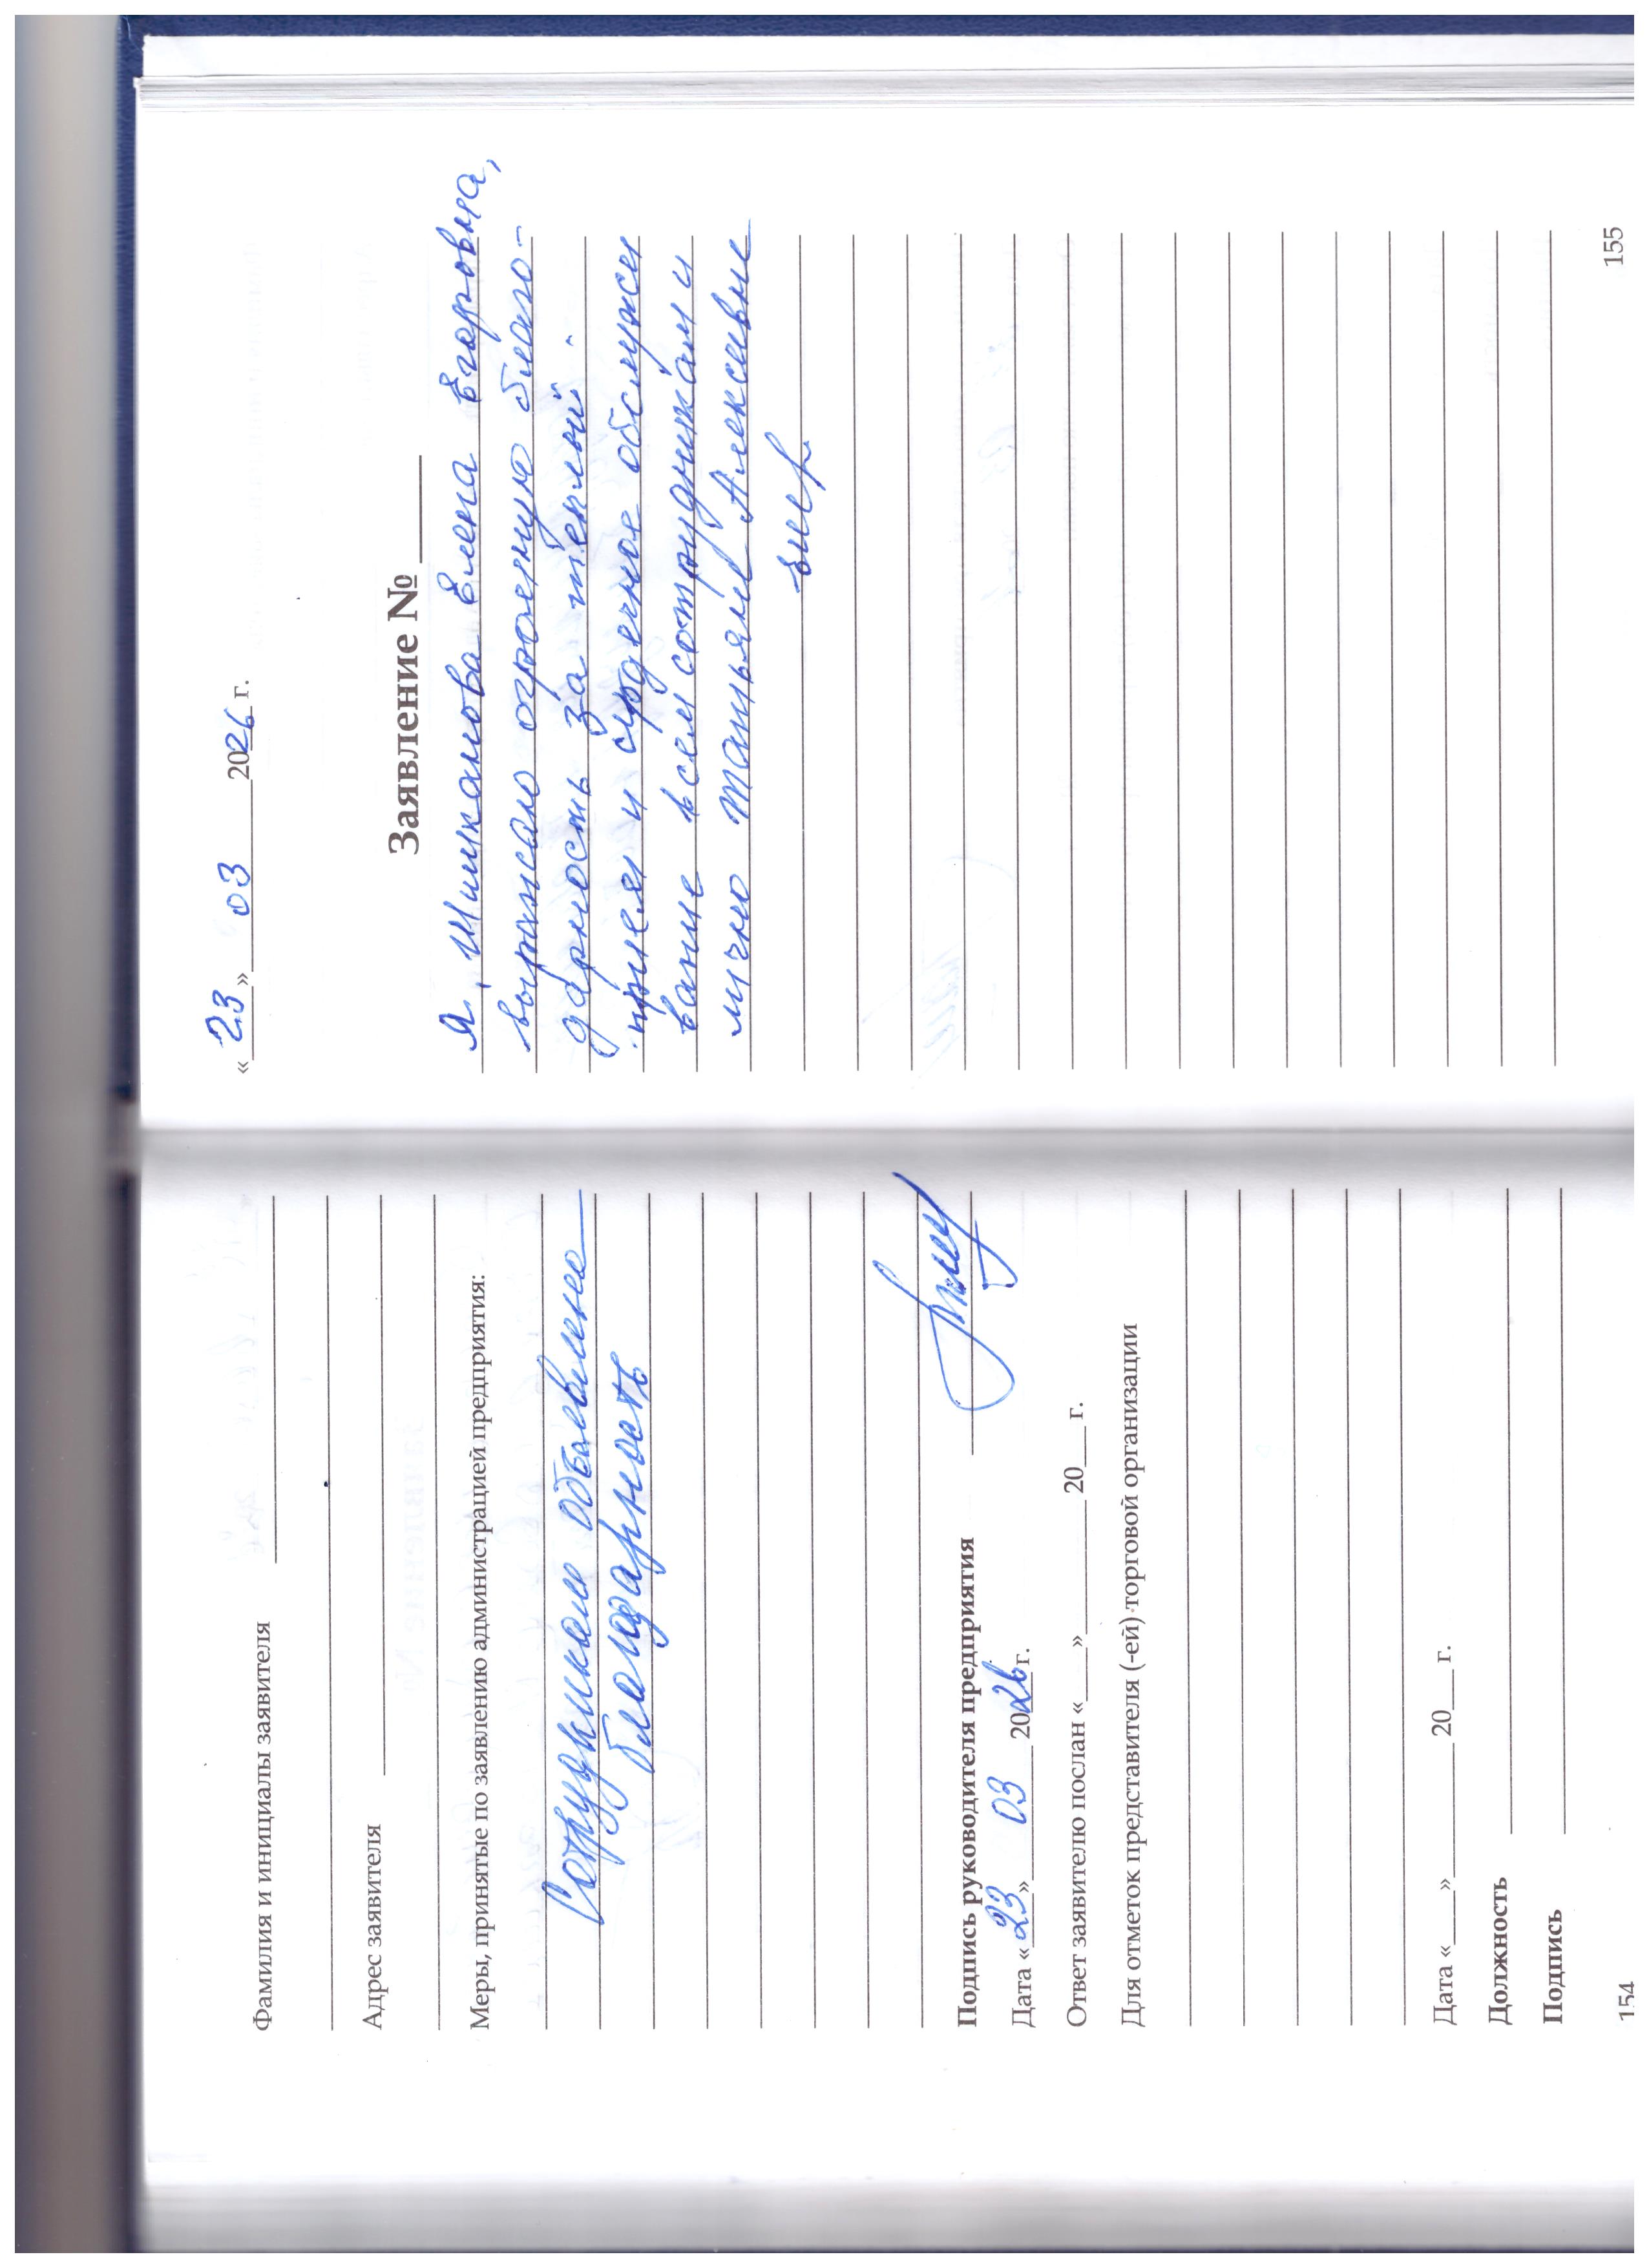 Фамилия и инициалы заявителя
Адрес заявителя
Меры, принятые по заявлению администрацией предприятия:
Сотрудникам объявлена
благодарность
Подпись руководителя предприятия
Дата «23» 03 2026 г.
Ответ заявителю послан «___» ______ 20___ г.
Для отметок представителя (-ей) торговой организации
Дата «___» ______ 20___ г.
Должность
Подпись
154
«23» 03 2026 г.
Заявление № ____
Я, Шишканова Елена Егоровна,
выражаю огромную благо-
дарность за теплый
прием и сердечное обслужи
вание всем сотрудникам и
лично Татьяне Алексеевне
155